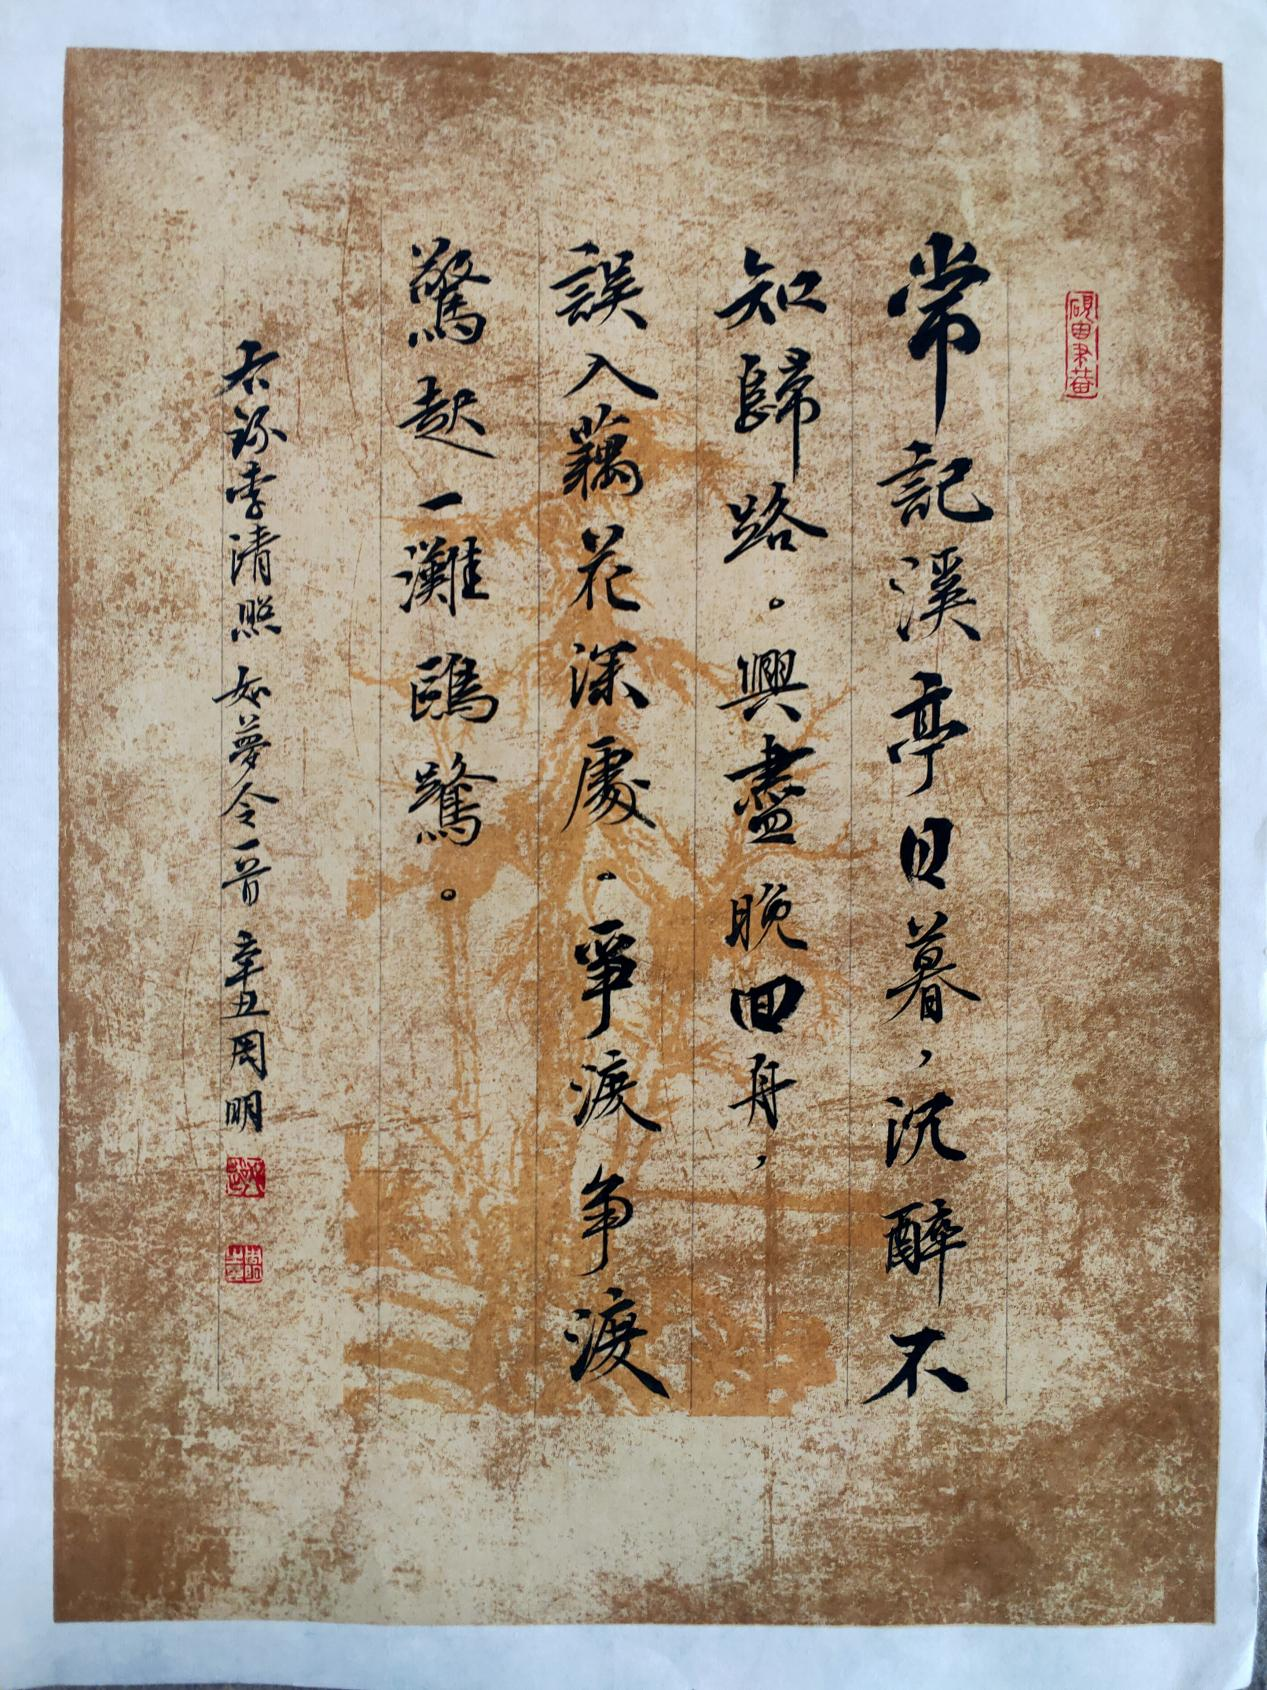 常記溪亭日暮，沉醉不
知歸路。興盡晚回舟，
誤入藕花深處。爭渡争渡
驚起一灘鷗鷺。
右錄李清照如夢令一首 辛丑周明